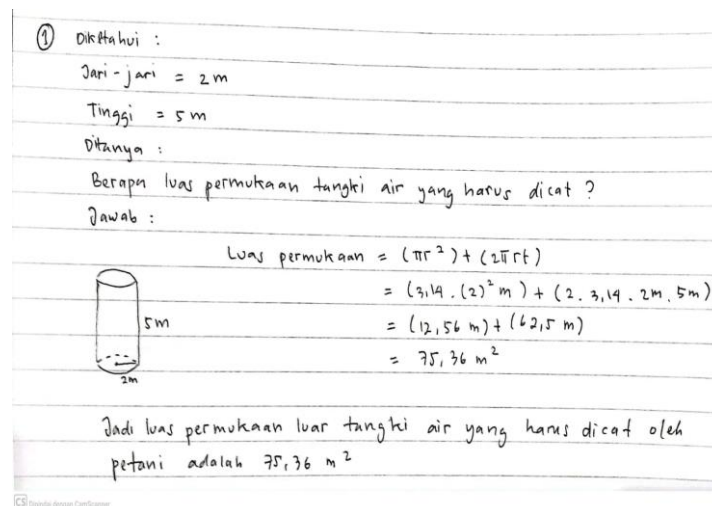 ① Diketahui :
Jari - jari = 2 m
Tinggi = 5 m
Ditanya :
Berapa luas permukaan tangki air yang harus dicat ?
Jawab :
Luas permukaan = (πr²) + (2πrt)
= (3,14 . (2)² m) + (2 . 3,14 . 2m . 5m)
= (12,56 m) + (62,5 m)
= 75,36 m²
5m
2m
Jadi luas permukaan luar tangki air yang harus dicat oleh
petani adalah 75,36 m²
CS Dipindai dengan CamScanner